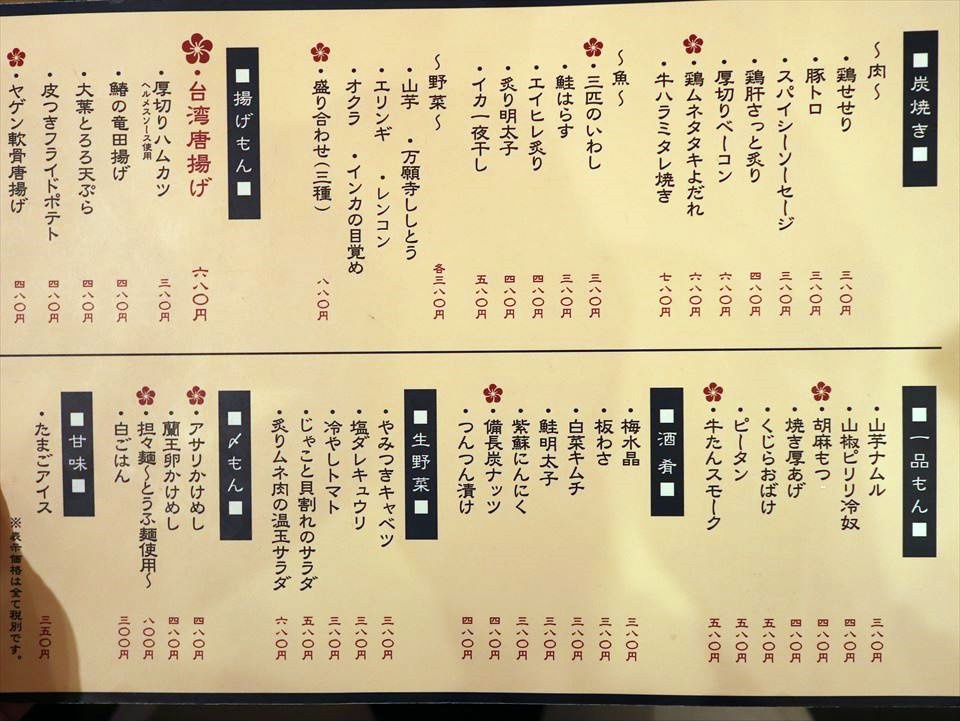 ■炭焼き■
〜肉〜
・鶏せせり 三八〇円
・豚トロ 三八〇円
・スパイシーソーセージ 三八〇円
・鶏肝さっと炙り 四八〇円
・厚切りベーコン 六八〇円
・鶏ムネタタキよだれ 六八〇円
・牛ハラミタレ焼き 七八〇円
〜魚〜
・三匹のいわし 三八〇円
・鮭はらす 三八〇円
・エイヒレ炙り 四八〇円
・炙り明太子 四八〇円
・イカ一夜干し 五八〇円
〜野菜〜 各三八〇円
・山芋 ・万願寺ししとう
・エリンギ ・レンコン
・オクラ ・インカの目覚め
・盛り合わせ(三種) 八八〇円
■揚げもん■
・台湾唐揚げ 六八〇円
・厚切りハムカツ 三八〇円
ヘルメスソース使用
・鯵の竜田揚げ 四八〇円
・大葉とろろ天ぷら 四八〇円
・皮つきフライドポテト 四八〇円
・ヤゲン軟骨唐揚げ 四八〇円
■一品もん■
・山芋ナムル 三八〇円
・山椒ピリリ冷奴 四八〇円
・胡麻もつ 四八〇円
・焼き厚あげ 四八〇円
・くじらおばけ 五八〇円
・ピータン 五八〇円
・牛たんスモーク 五八〇円
■酒肴■
・梅水晶 三八〇円
・板わさ 三八〇円
・白菜キムチ 三八〇円
・鮭明太子 三八〇円
・紫蘇にんにく 三八〇円
・備長炭ナッツ 四八〇円
・つんつん漬け 四八〇円
■生野菜■
・やみつきキャベツ 三八〇円
・塩ダレキュウリ 三八〇円
・冷やしトマト 三八〇円
・じゃこと貝割れのサラダ 五八〇円
・炙りムネ肉の温玉サラダ 六八〇円
■〆もん■
・アサリかけめし 四八〇円
・蘭王卵かけめし 四八〇円
・担々麺〜とうふ麺使用〜 八〇〇円
・白ごはん 三〇〇円
■甘味■
・たまごアイス 三五〇円
※表示価格は全て税別です。